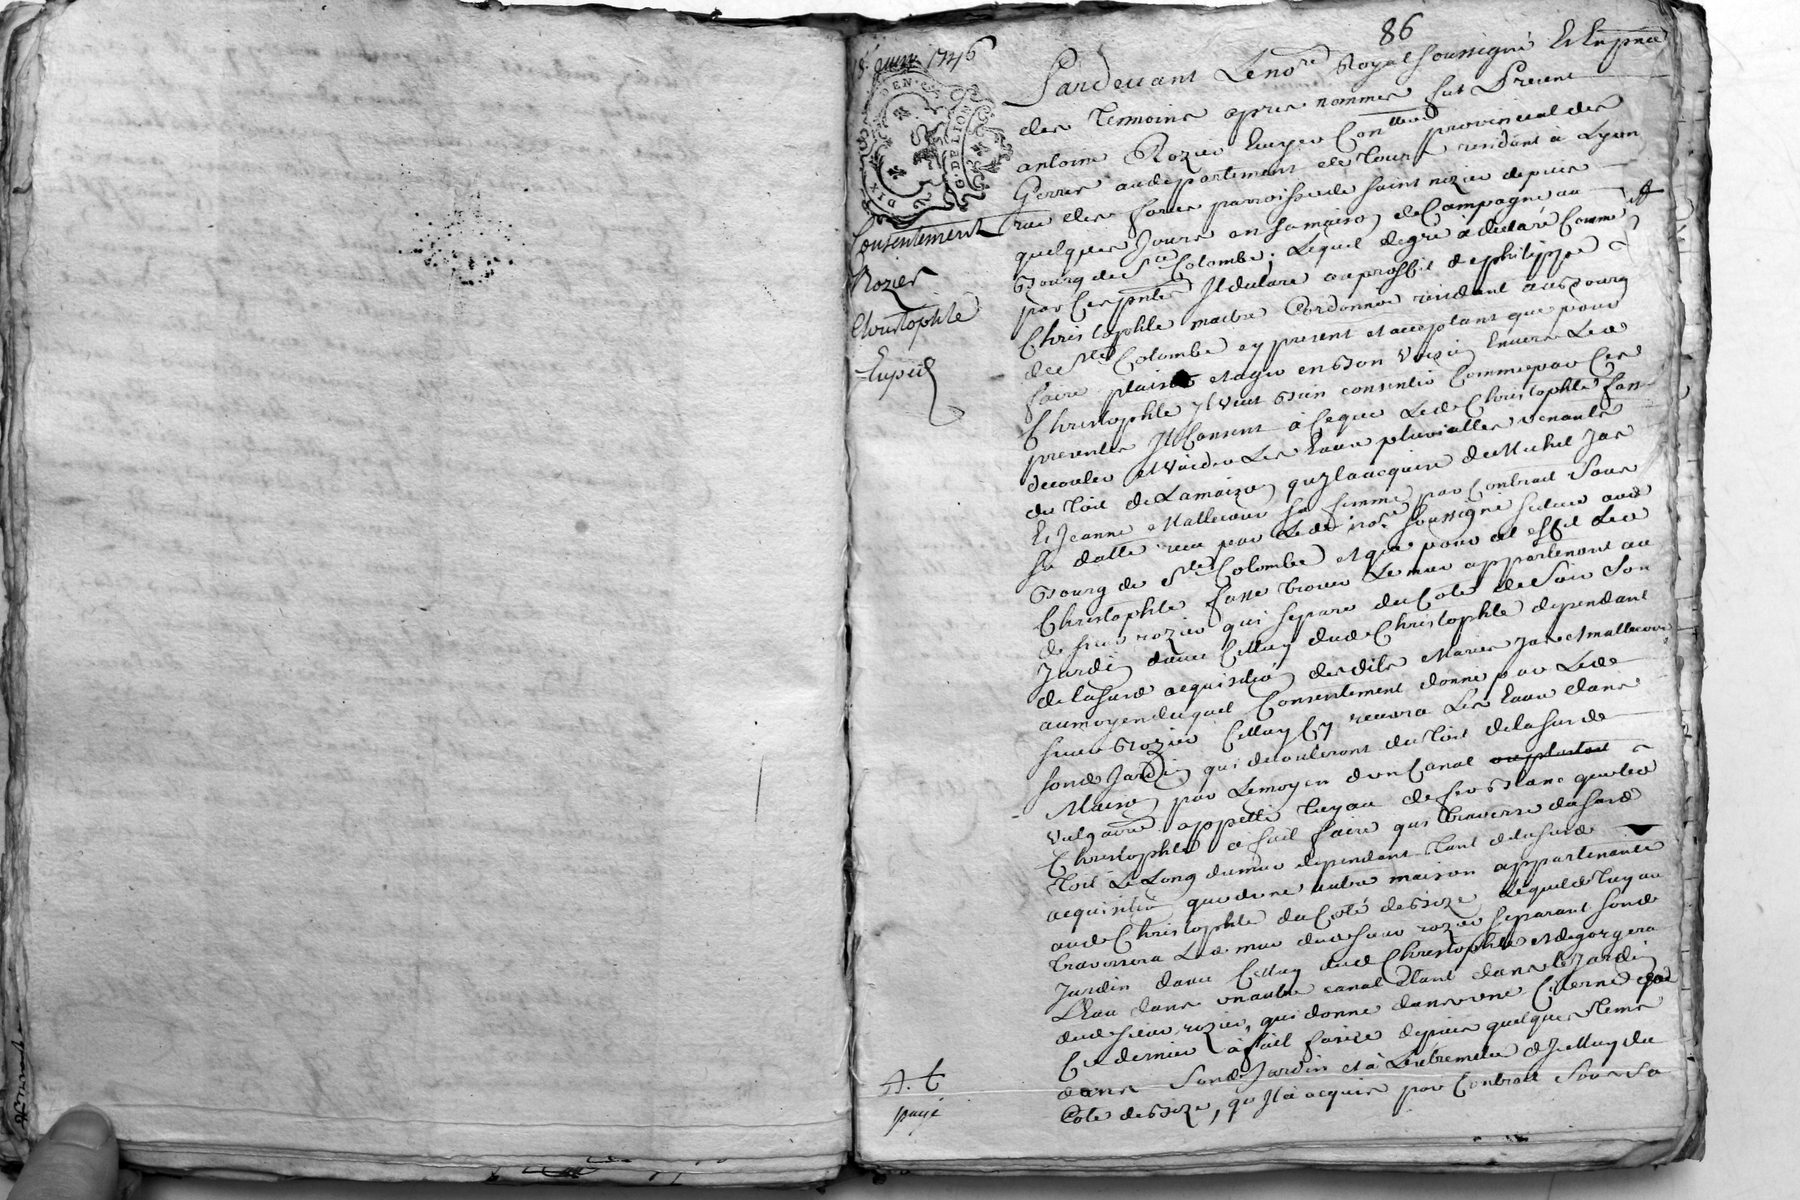 86
juin 1746
DIX DEN.
G.D.DE LION
Consentement
Rozier
Christophle
Expedi
Pardevant Le no.re Royal soussigné Et En pnce
des temoins apres nommes fut Present
antoine Rozier Ecuyer Con.er provincial des
Gerres au departement de Tours residant à Lyon
rüe des forces parroisse de saint nizier depuis
quelques Jours en sa maison de Campagne au
Bourg de Ste Colombe; Lequel de gré à declaré Comme
par Ces pntes Il declare au proffit de philippe
Christophle maitre Cordonnier residant au Bourg
de Ste Colombe cy present et acceptant que pour
faire plaisir et agir en Bon Voisin Envers Led
Christophle Il veut Bien consentir Comme par Ces
presentes Il Consent à Ce que Led Christophle fasse
decouler et vuider Les Eaux pluvialles venants
du toit de La maison qu'Il a acquise de Michel Jas
Et Jeanne Mallecour sa femme par Contrait sous
sa datte receu par Led no.re soussigné située aud
Bourg de Ste Colombe et que pour cet effet Led
Christophle fasse trouer Le mur appartenant au
d sieur rozier qui separe du Coté de Soir Son
Jardin davec Celluy dud Christophle dependant
de la susd acquisition desdits Mariés Jas et mallecour
au moyen duquel Consentement donné par Led
sieur Rozier Celluy Cy recevra Les Eaux dans
sond Jardin qui decouleront du toit de la susd
Maison par Le moyen d'un Canal
vulgairemt appellé tuyau de fer Blanc que led
Christophle a fait faire qui traverse du susd
toit Le Long du mur dependant tant de la susd
acquisition que d'une autre maison appartenante
aud Christophle du Coté de Bize Lequel d tuyau
traversera Led mur dud sieur rozier separant sond
Jardin davec Celluy dud Christophle et degorgera
L'Eau dans un autre canal Etant dans le Jardin
dud sieur rozier, qui donne dans une Citerne que
Ce dernier a fait faire depuis quelques tems
dans Sond Jardin et à L'extremité d'Icelluy du
Coté de Bize, qu'Il a acquis par Contrait Sous Sa
payé